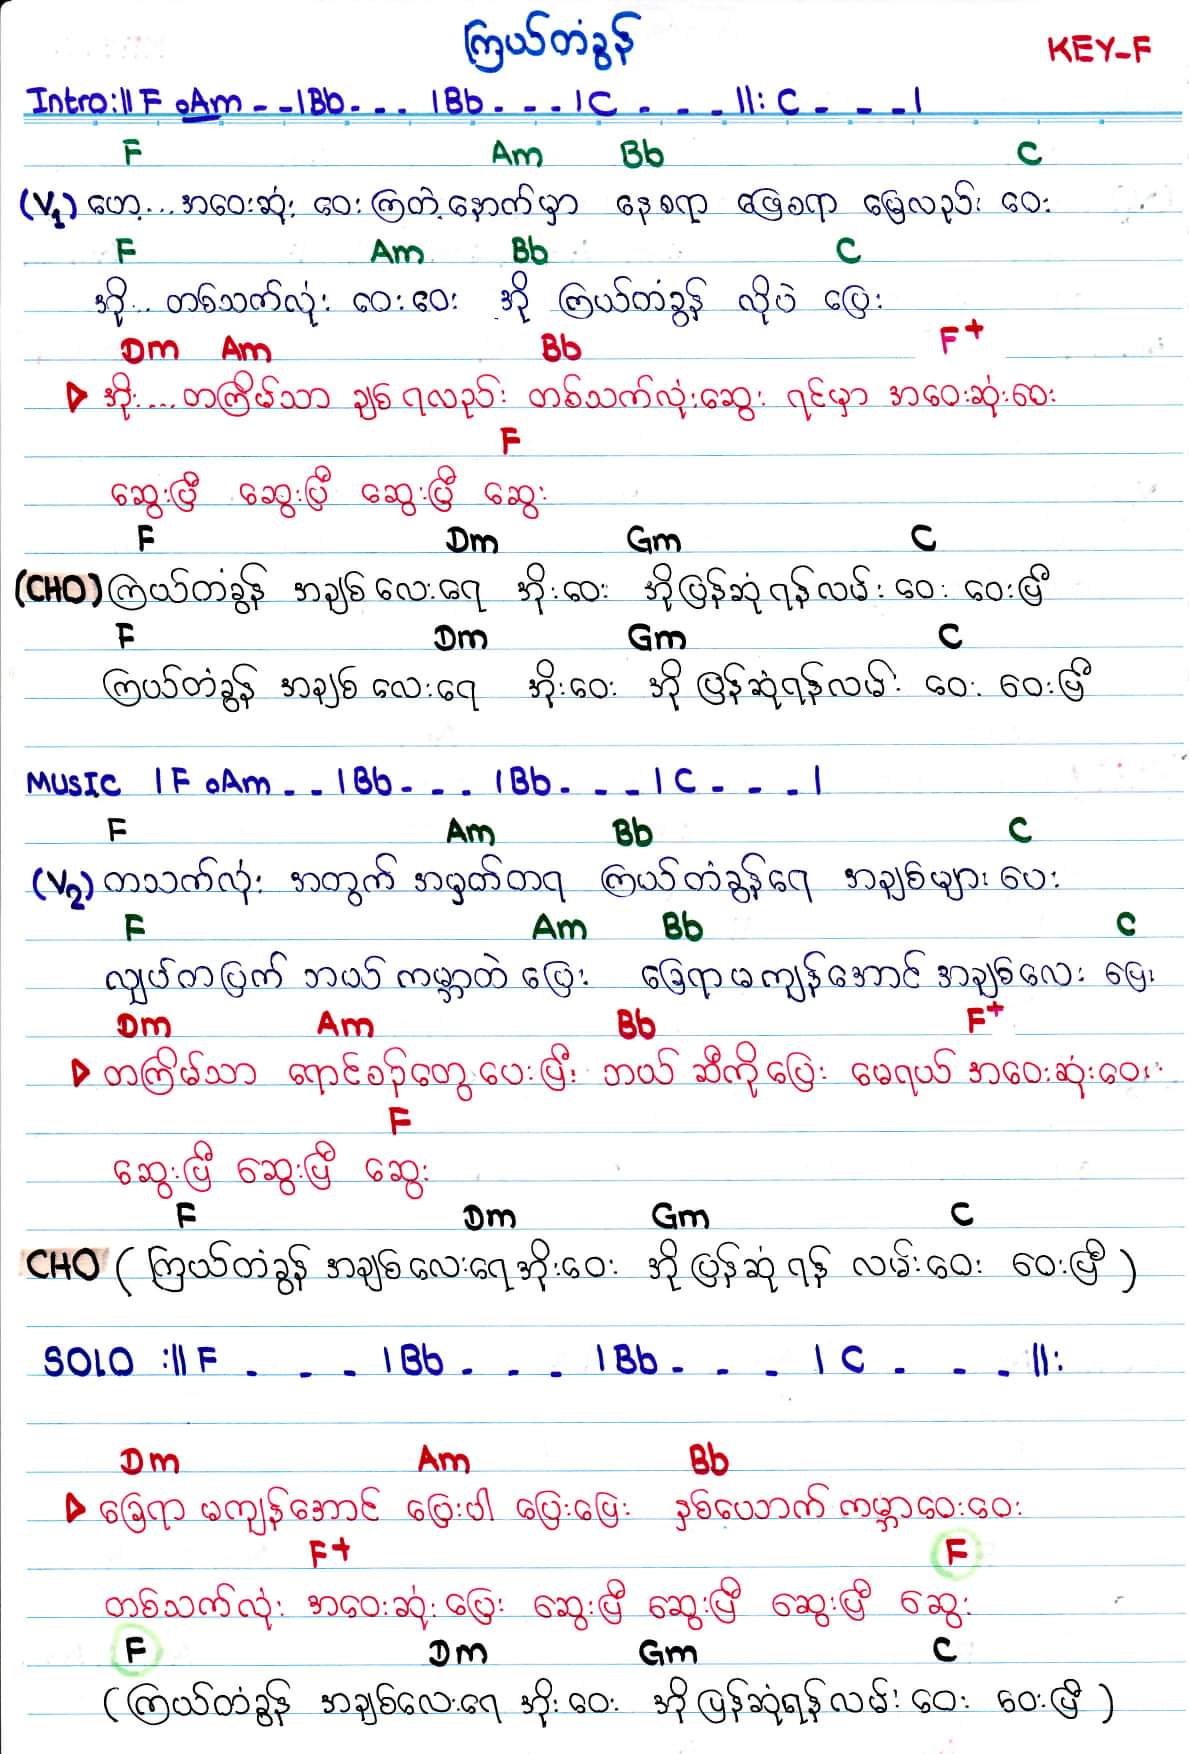 ကြယ်တံခွန်
KEY-F
Intro:|| F ₀Am - -|Bb- - - |Bb - - -|C - - - ||: C - - - |
F Am Bb C
(V1) ဟေ့... အဝေးဆုံး ဝေး ကြတဲ့ နောက်မှာ နေစရာ ဖြေစရာ မြေလည်း ဝေး
F Am Bb C
အို... တစ်သက်လုံး ဝေးဝေး အို ကြယ်တံခွန် လိုပဲ ပြေး
Dm Am Bb F+
အိုး... တကြိမ်သာ ချစ်ရလည်း တစ်သက်လုံးဆွေး ရင်မှာ အဝေးဆုံးဝေး
F
ဆွေးပြီ ဆွေးပြီ ဆွေးပြီ ဆွေး
F Dm Gm C
(CHO) ကြယ်တံခွန် အချစ်လေးရေ အိုးဝေး အို ပြန်ဆုံရန်လမ်း ဝေး ဝေးပြီ
F Dm Gm C
ကြယ်တံခွန် အချစ်လေးရေ အိုးဝေး အို ပြန်ဆုံရန်လမ်း ဝေး ဝေးပြီ
MUSIC |F ₀Am - - |Bb- - - |Bb- - - |C - - - |
F Am Bb C
(V2) တသက်လုံး အတွက် အမှတ်တရ ကြယ်တံခွန်ရေ အချစ်များ ပေး
F Am Bb C
လျှပ်တပြက် ဘယ် ကမ္ဘာထဲ ပြေး ခြေရာမကျန်အောင် အချစ်လေး ပြေး
Dm Am Bb F+
တကြိမ်သာ ရောင်စဉ်တွေ ပေးပြီး ဘယ် ဆီကိုပြေး မေရယ် အဝေးဆုံးဝေး
F
ဆွေးပြီ ဆွေးပြီ ဆွေး
F Dm Gm C
CHO ( ကြယ်တံခွန် အချစ်လေးရေအိုးဝေး အို ပြန်ဆုံရန် လမ်းဝေး ဝေးပြီ )
SOLO :|| F - - - |Bb - - - |Bb - - - | C - - - ||:
Dm Am Bb
ခြေရာ မကျန်အောင် ပြေးပါ ပြေးပြေး နှစ်ယောက် ကမ္ဘာဝေးဝေး
F+ F
တစ်သက်လုံး အဝေးဆုံး ပြေး ဆွေးပြီ ဆွေးပြီ ဆွေးပြီ ဆွေး
F Dm Gm C
(ကြယ်တံခွန် အချစ်လေးရေ အိုးဝေး အို ပြန်ဆုံရန်လမ်း ဝေး ဝေးပြီ )